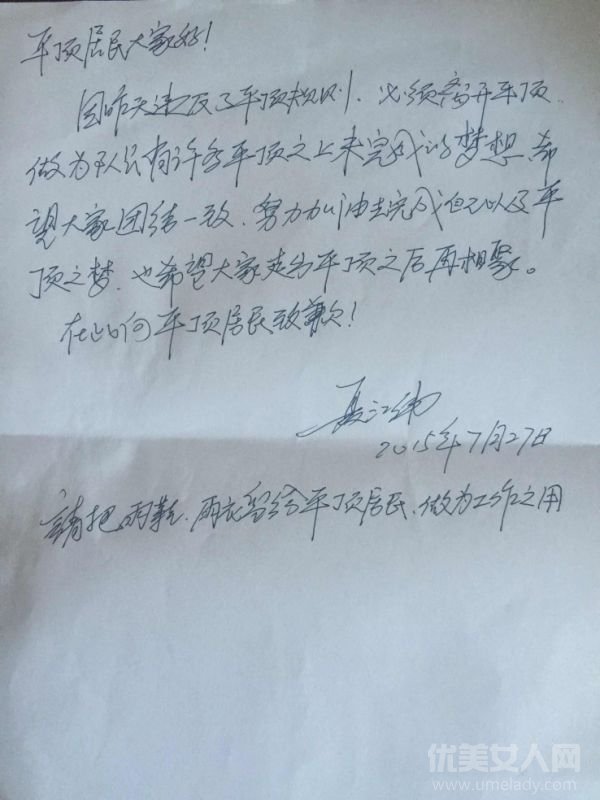 平顶居民大家好!
因昨天违反了平顶规则,必须离开平顶.
做为个人只有许多平顶之上未完成的梦想.希
望大家团结一致.努力加油去完成自己以及平
顶之梦.也希望大家走出平顶之后再相聚。
在此向平顶居民致歉!
聂江伟
2015年7月27日
請把雨鞋.雨衣留给平顶居民.做为工作之用
优美女人网
www.umelady.com